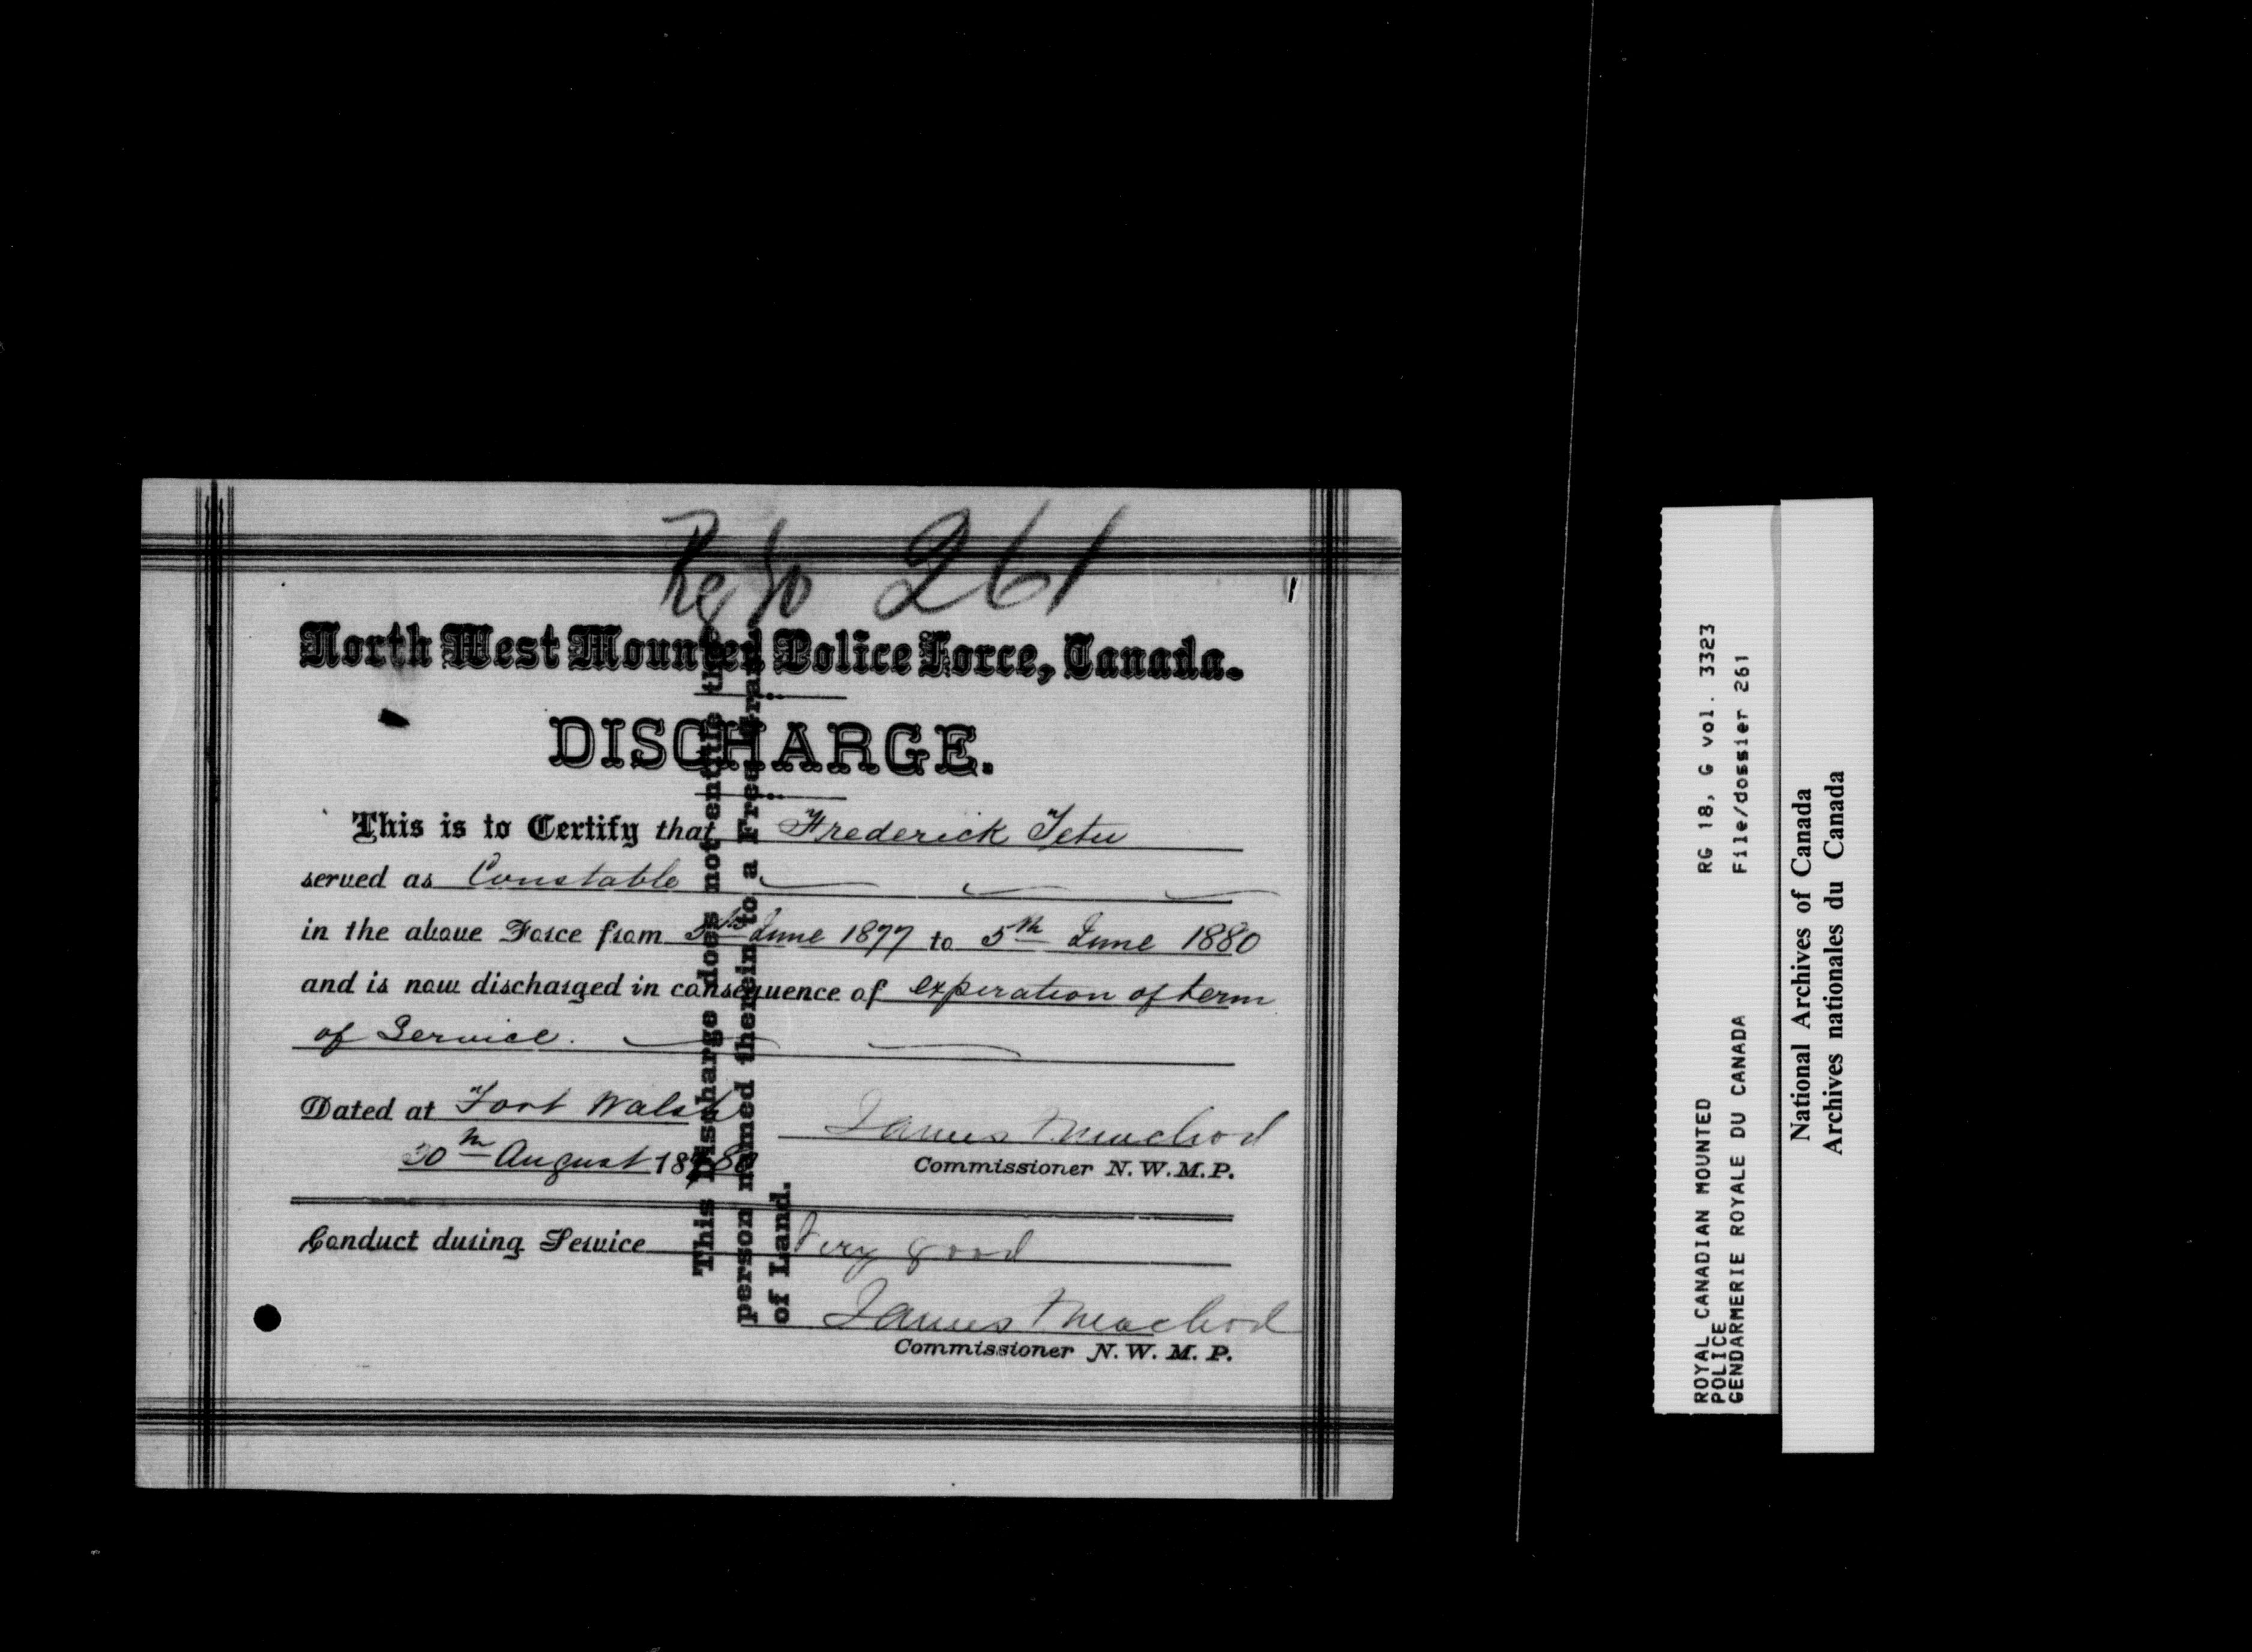 Reg No 261
1
North West Mounted Police Force, Canada.
DISCHARGE.
This is to Certify that Frederick Tetu
served as Constable
in the above Force from 5th June 1877 to 5th June 1880
and is now discharged in consequence of expiration of term
of Service.
Dated at Fort Walsh
30th August 1880
James F Macleod
Commissioner N.W.M.P.
Conduct during Service Very good
James F Macleod
Commissioner N. W. M. P.
This Discharge does not entitle the
person named therein to a Free Grant
of Land.
ROYAL CANADIAN MOUNTED
POLICE
GENDARMERIE ROYALE DU CANADA
RG 18, G vol. 3323
File/dossier 261
National Archives of Canada
Archives nationales du Canada